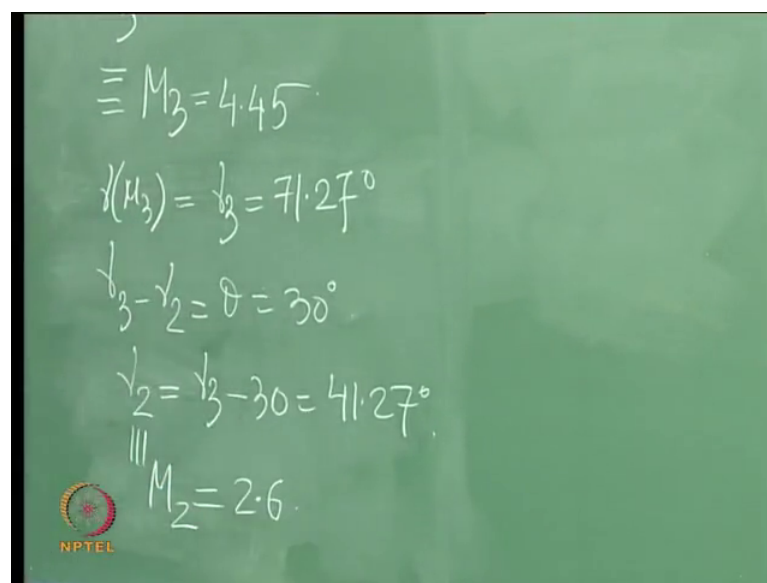 ≡ M₃ = 4.45
ν(M₃) = ν₃ = 71.27°
ν₃ - ν₂ = θ = 30°
ν₂ = ν₃ - 30 = 41.27°
≡
M₂ = 2.6
NPTEL